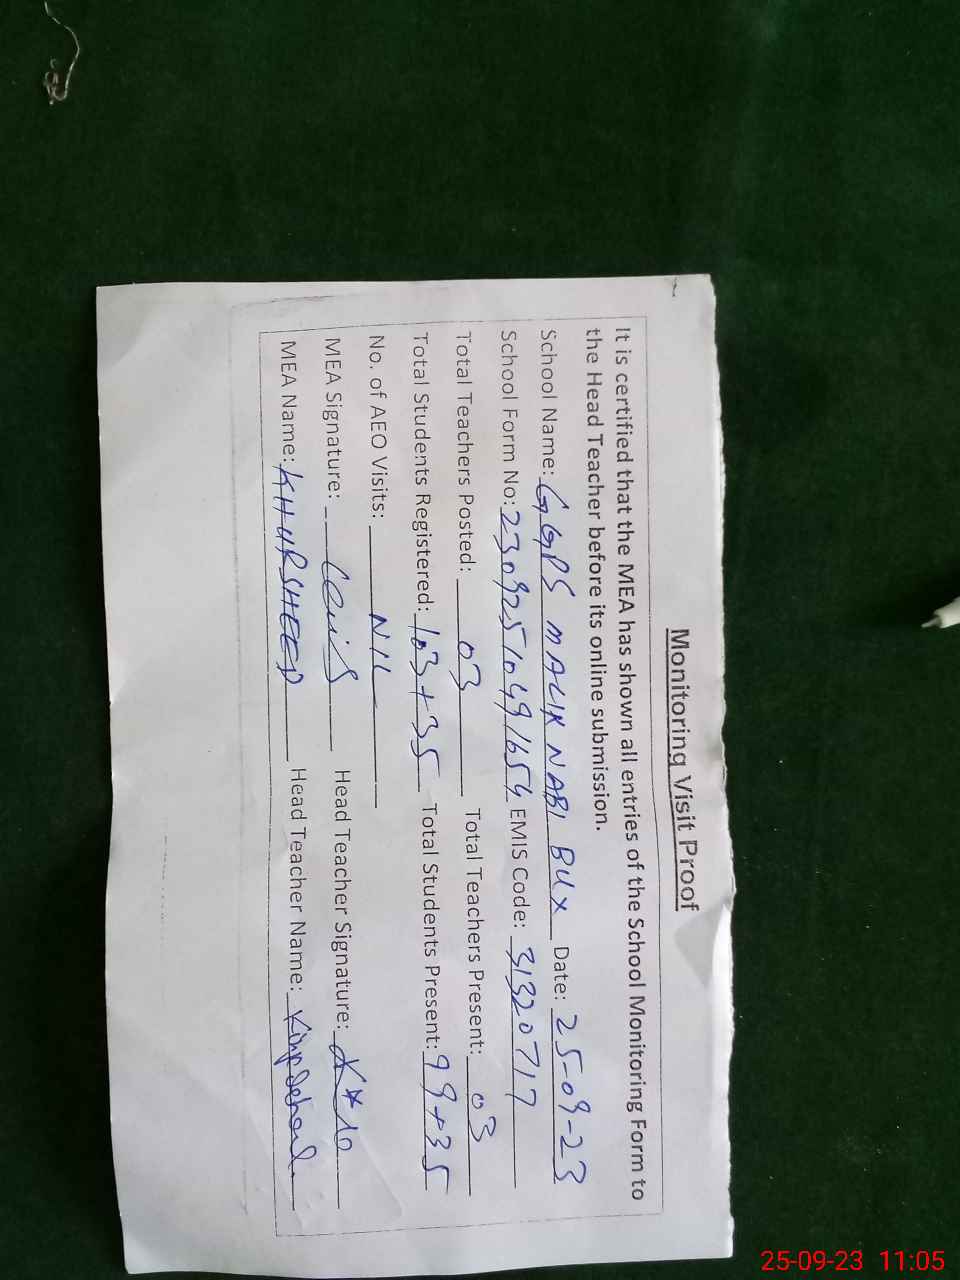 Monitoring Visit Proof
It is certified that the MEA has shown all entries of the School Monitoring Form to
the Head Teacher before its online submission.
School Name: GGPS MALIK NABI BUX Date: 25-09-23
School Form No: 23092510491654 EMIS Code: 31320717
Total Teachers Posted: 03 Total Teachers Present: 03
Total Students Registered: 103+35 Total Students Present: 99+35
No. of AEO Visits: NIL
MEA Signature: Head Teacher Signature:
MEA Name: KHURSHEED Head Teacher Name:
25-09-23 11:05